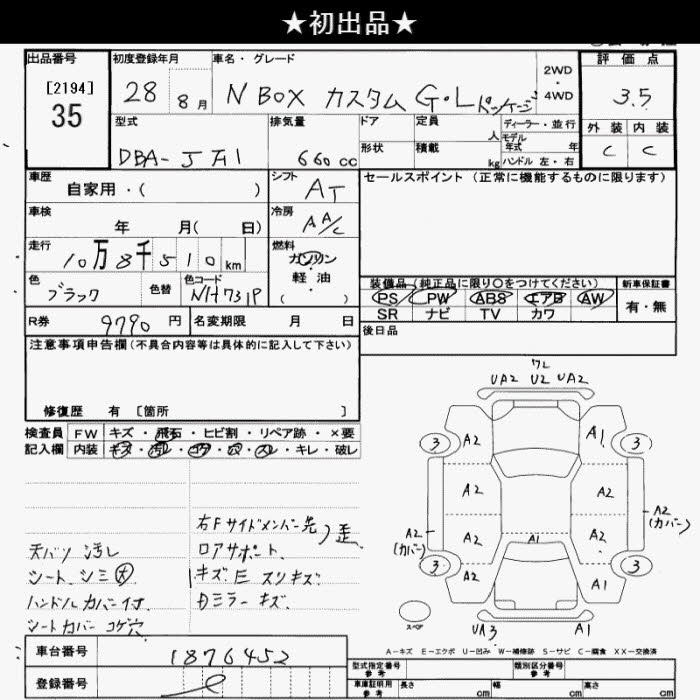 ★初出品★
出品番号 初度登録年月 車名・グレード 2WD・4WD 評価点
[2194] 35
28 8月 N BOX カスタム G・Lパッケージ 3.5
型式 排気量 ドア 定員 人 ディーラー・並行 外装 内装
DBA-JF1 660cc 形状 積載 kg モデル年式 年 C C
ハンドル 左・右
車歴 シフト セールスポイント(正常に機能するものに限ります)
自家用・( ) AT
車検 冷房
年 月( 日) AA/C
走行 燃料
10万8千510km ガソリン
軽油
( )
色 色替 色コード 装備品(純正品に限り○をつけてください) 新車保証書
ブラック NH731P PS PW ABS エアB AW 有・無
SR ナビ TV カワ
R券 9790円 名変期限 月 日 後日品
注意事項申告欄(不具合内容等は具体的に記入して下さい)
修復歴 有 [箇所 ]
検査員 FW キズ・飛石・ヒビ割・リペア跡・×要
記入欄 内装 キズ・汚レ・コゲ・穴・スレ・キレ・破レ
ワレ
UA2 U2 UA2
3 A2 A1 3
A2 A2
A2(カバー) A2 A1 A2 A2(カバー)
3 A2 A1 3
スペア UA3 A1
右Fサイドメンバー先
ロアサポート 歪
天バリ 汚レ キズ E スリキズ
シート シミ大 ミラーキズ
ハンドルカバー付
シートカバー コゲ穴
A-キズ E-エクボ U-凹み W-補修跡 S-サビ C-腐食 XX-交換済
車台番号 1876452
登録番号
型式指定番号 参考 類別区分番号 参考
車庫証明用 参考 長さ cm 幅 cm 高さ cm